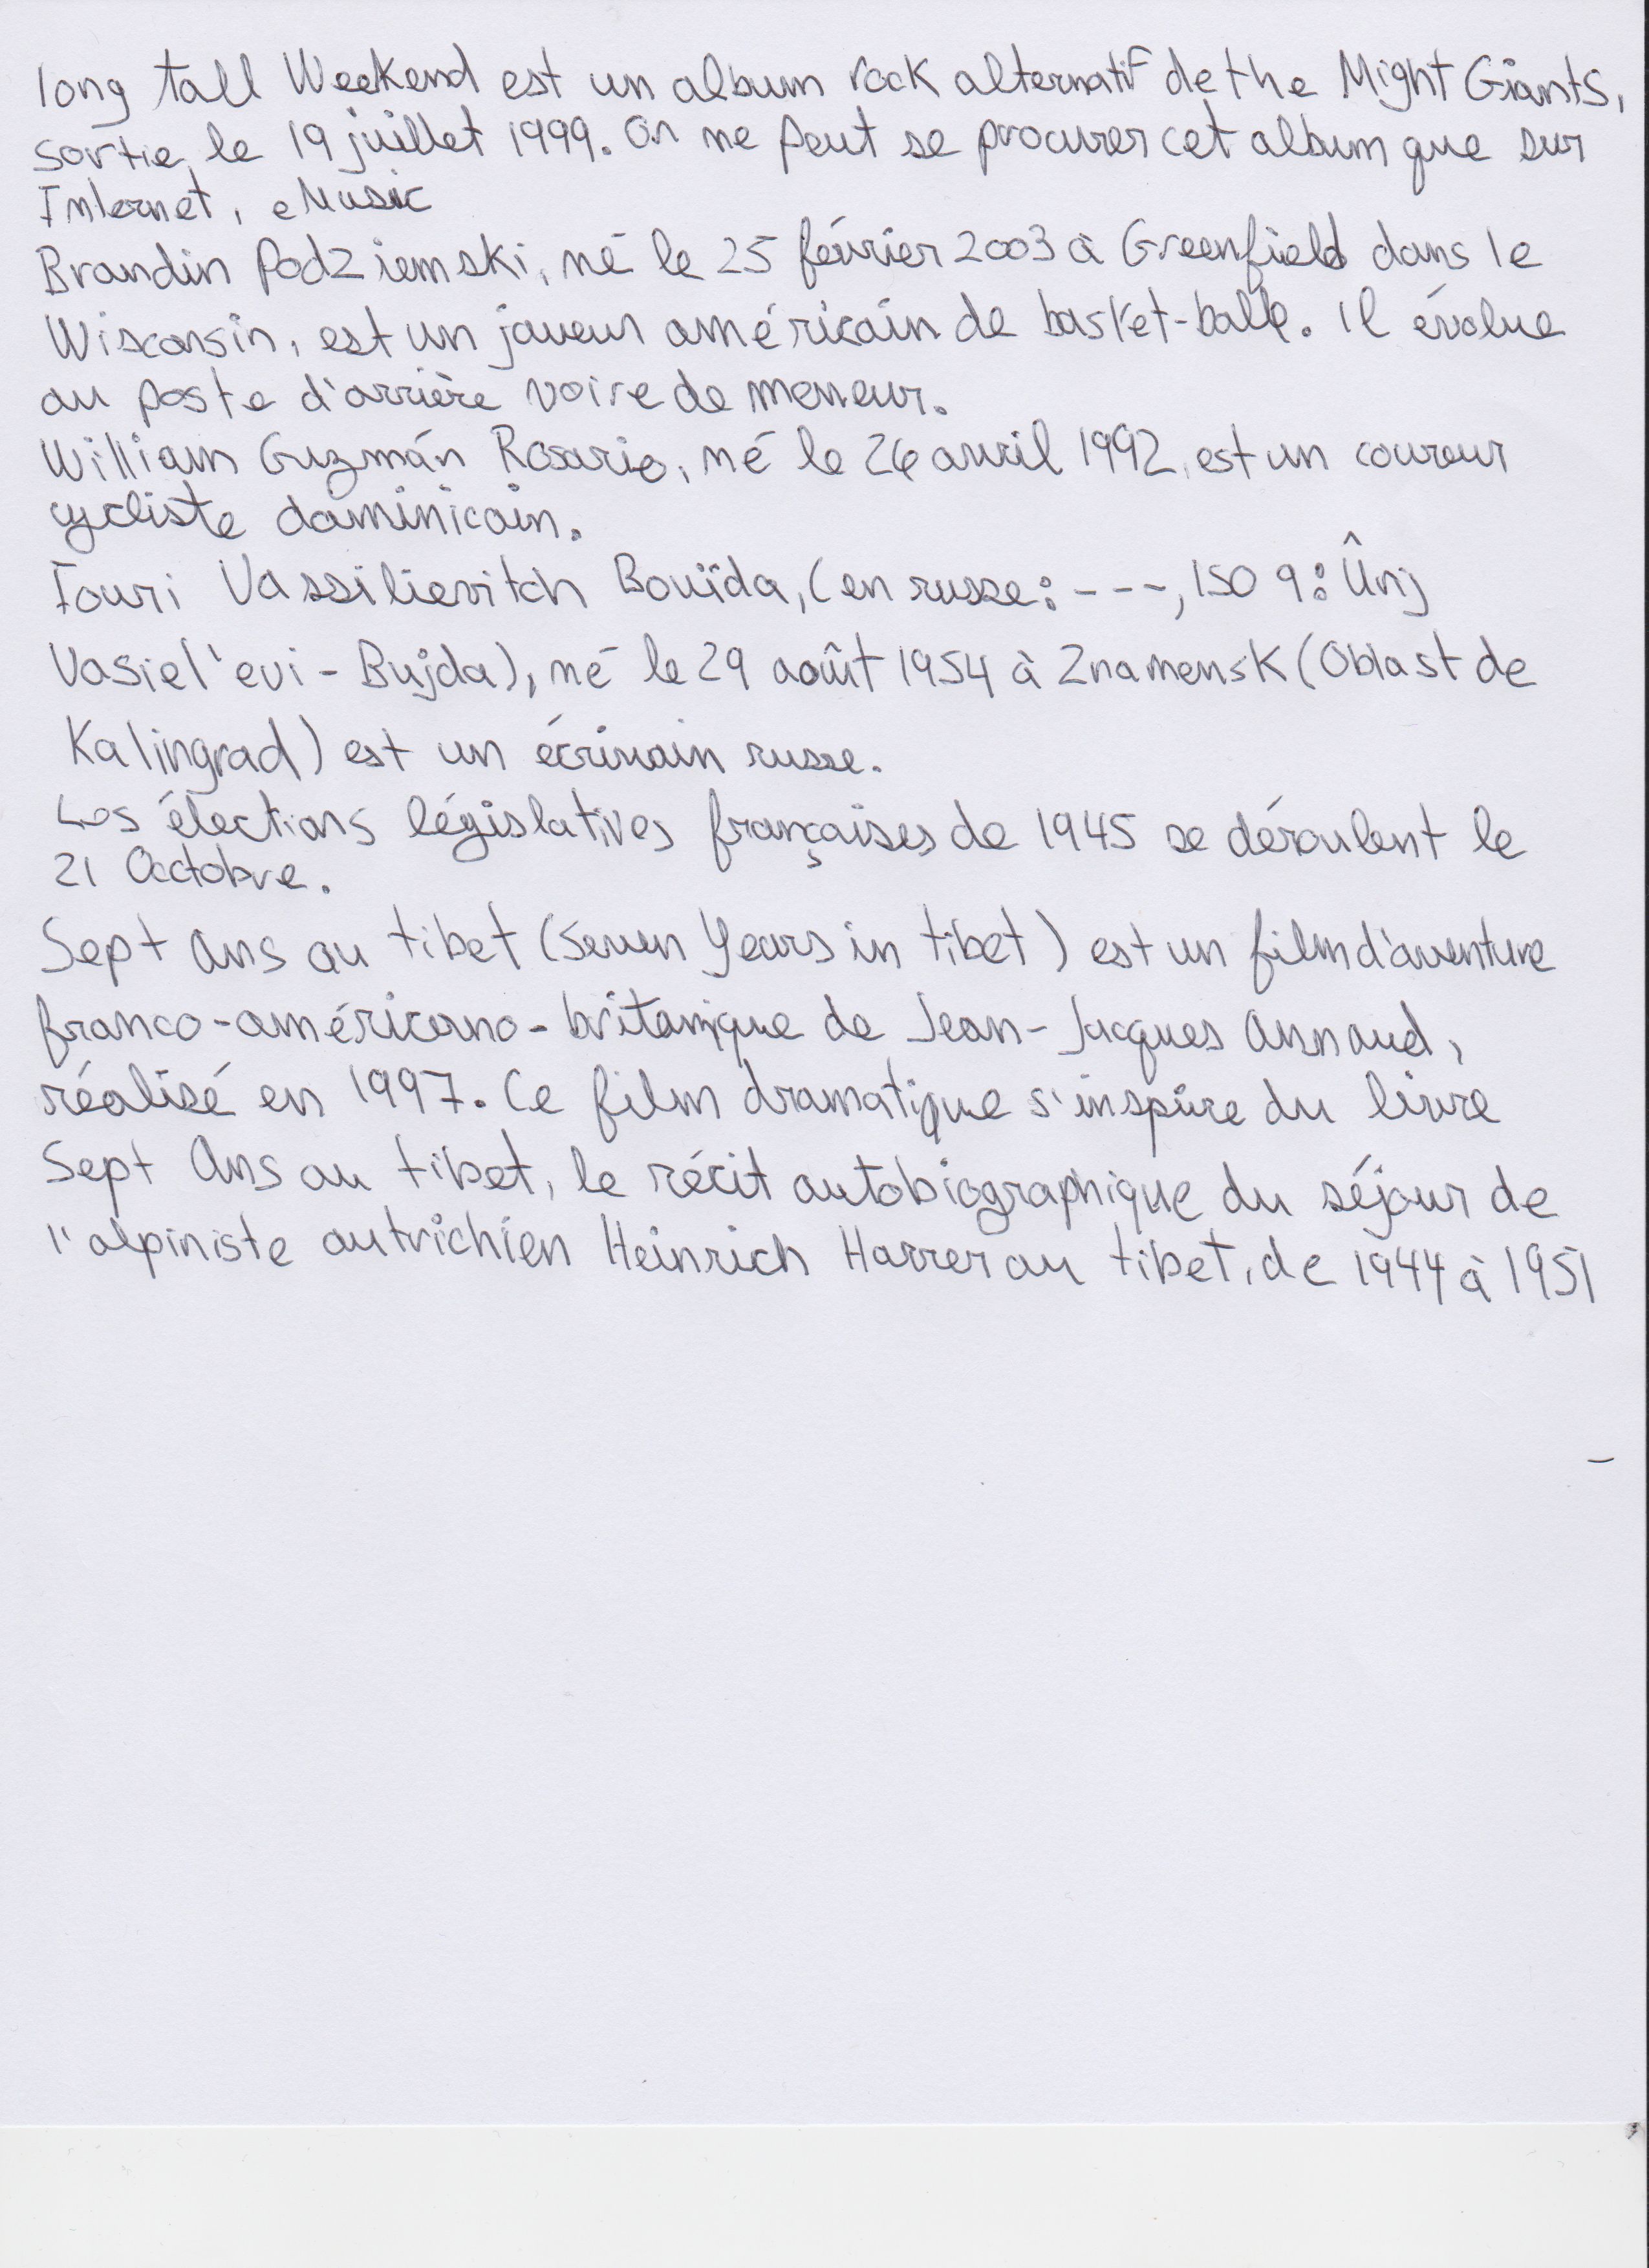 long tall Weekend est un album rock alternatif de the Might Giants,
sortie, le 19 juillet 1999. On ne peut se procurer cet album que sur
Internet, eMusic
Brandin Podziemski, né le 25 février 2003 à Greenfield dans le
Wisconsin, est un joueur américain de basket-ball. Il évolue
au poste d'arrière voire de meneur.
William Guzmán Rosario, né le 26 avril 1992, est un coureur
cycliste dominicain.
Iouri Vassilievitch Bouïda, (en russe : ---, ISO 9 : Ûnj
Vasiel'evi - Bujda), né le 29 août 1954 à Znamensk (Oblast de
Kalingrad) est un écrivain russe.
Les élections législatives françaises de 1945 se déroulent le
21 Octobre.
Sept Ans au tibet (Seven Years in tibet) est un film d'aventure
franco-américano-britanique de Jean-Jacques Annaud,
réalisé en 1997. Ce film dramatique s'inspire du livre
Sept Ans au tibet, le récit autobiographique du séjour de
l'alpiniste autrichien Heinrich Harrer au tibet, de 1944 à 1951